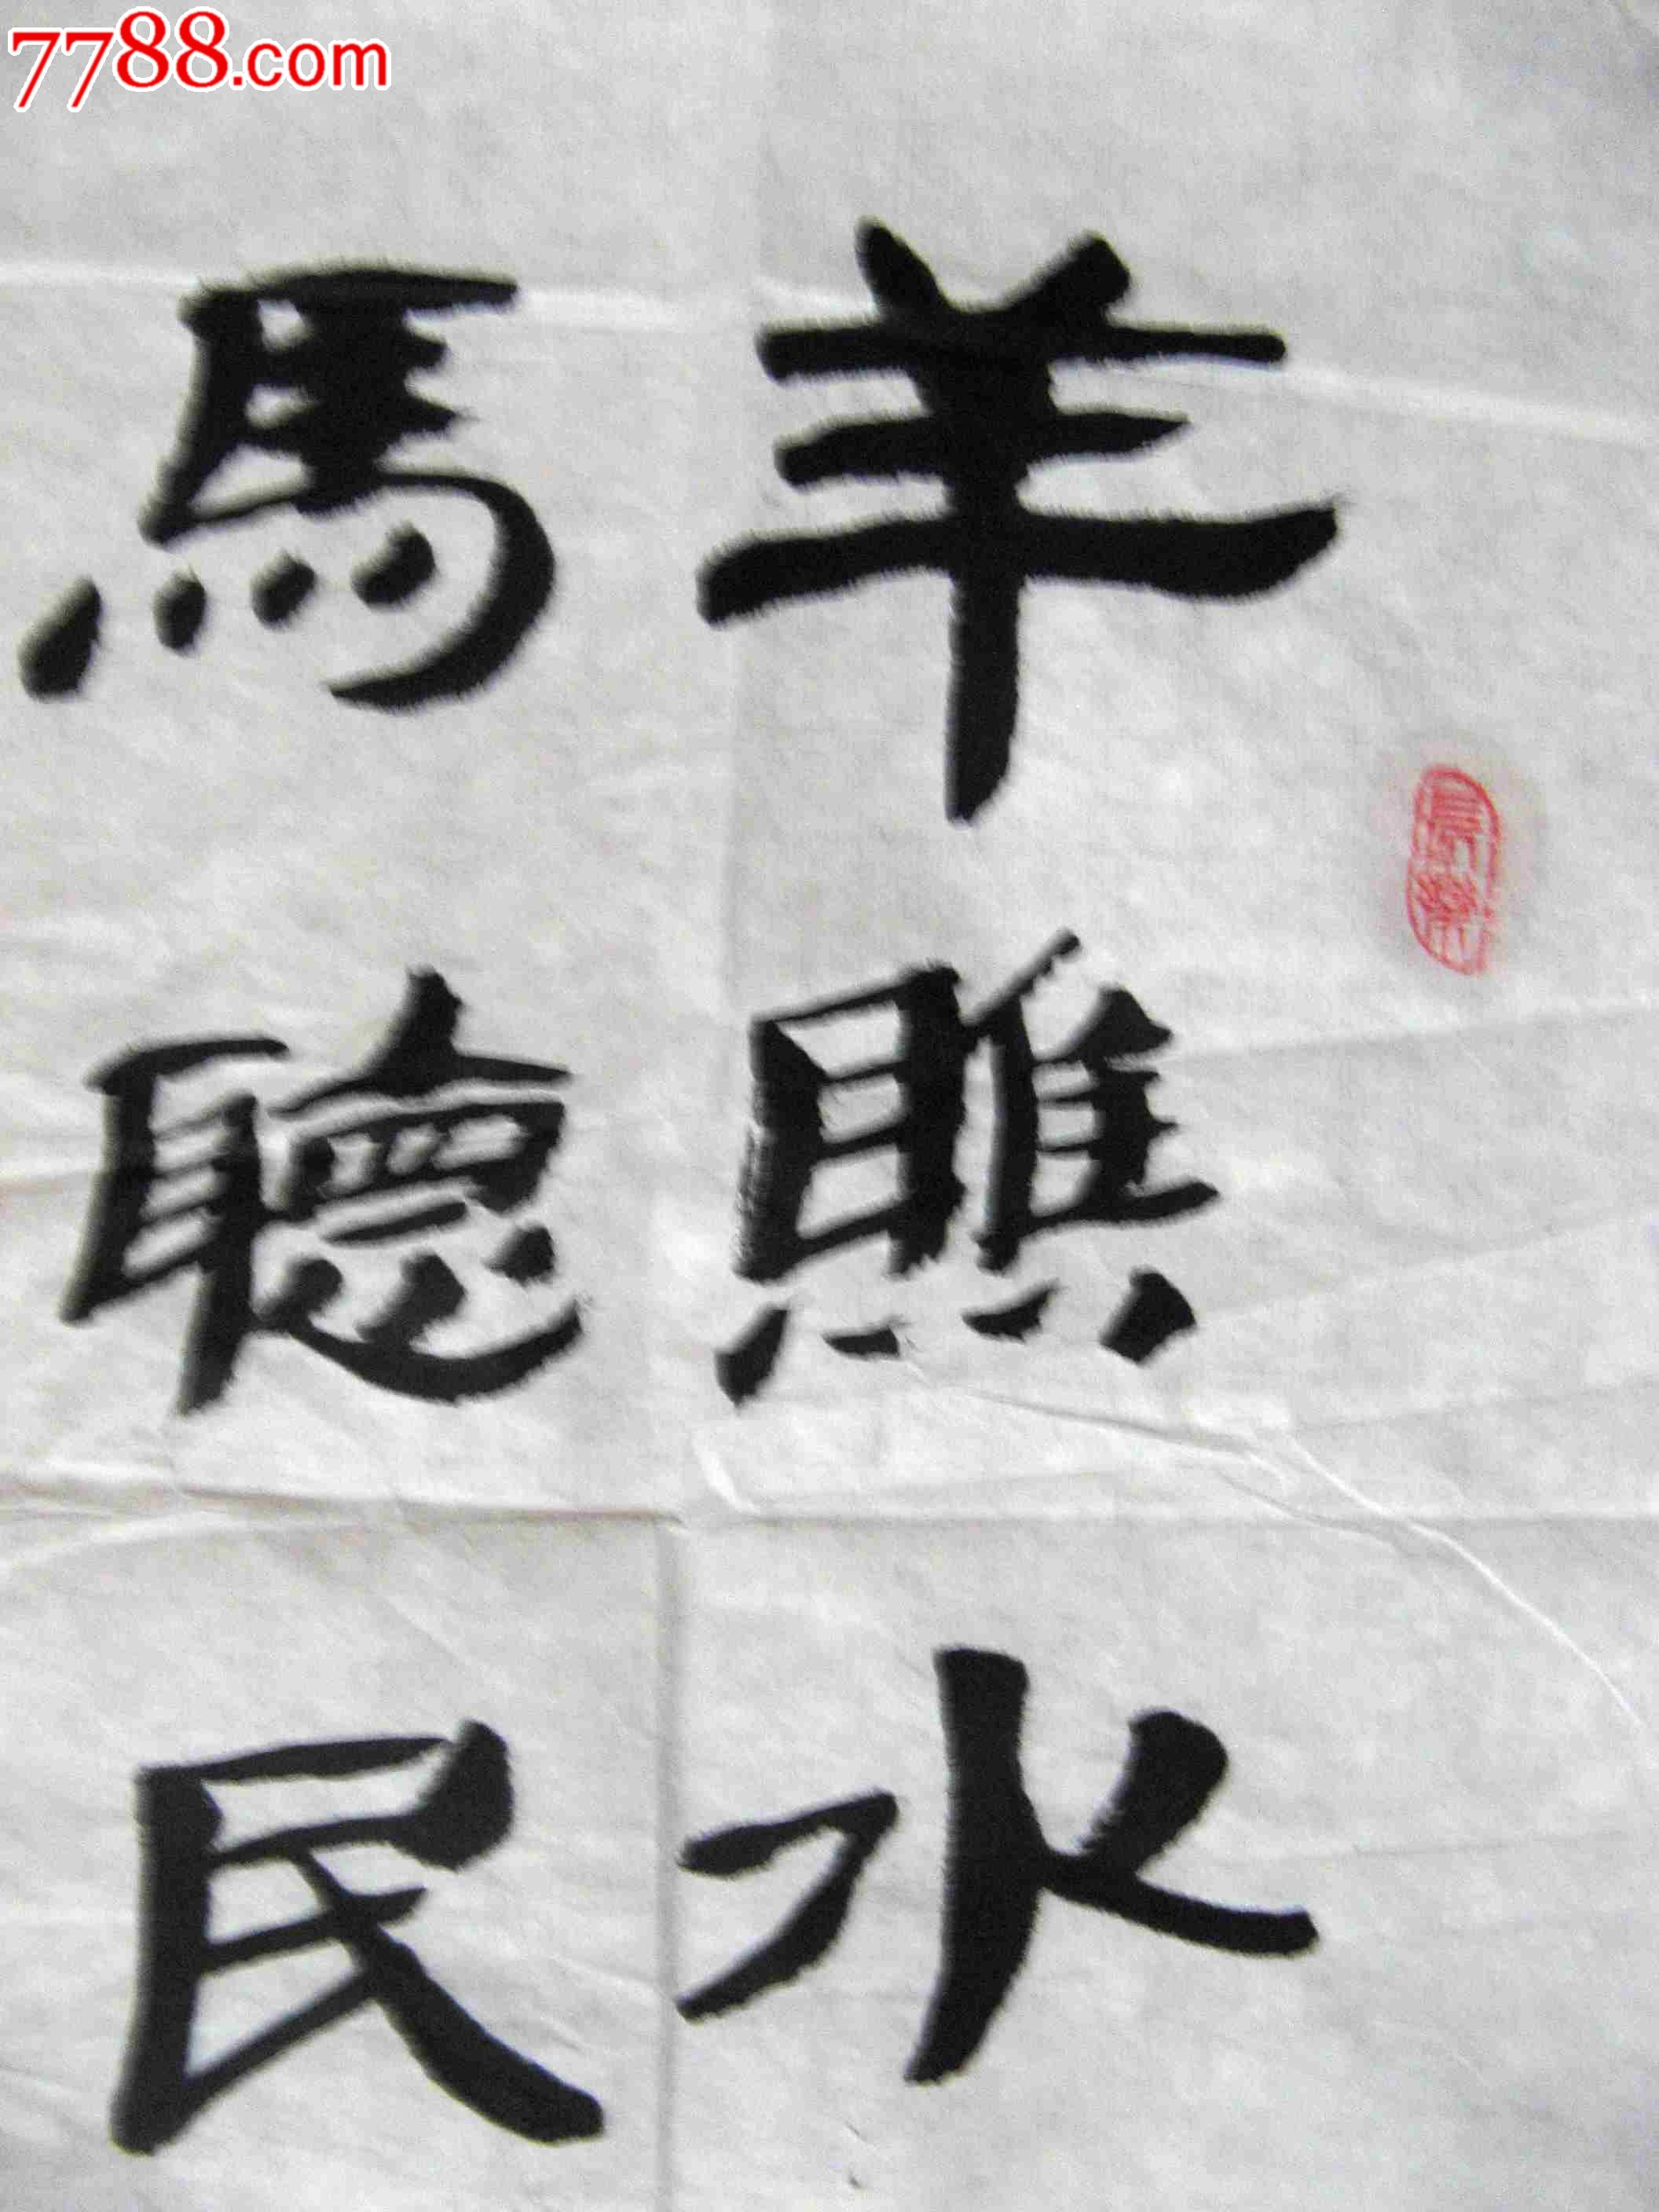 7788.com
羊瞧水
馬聽民
長樂